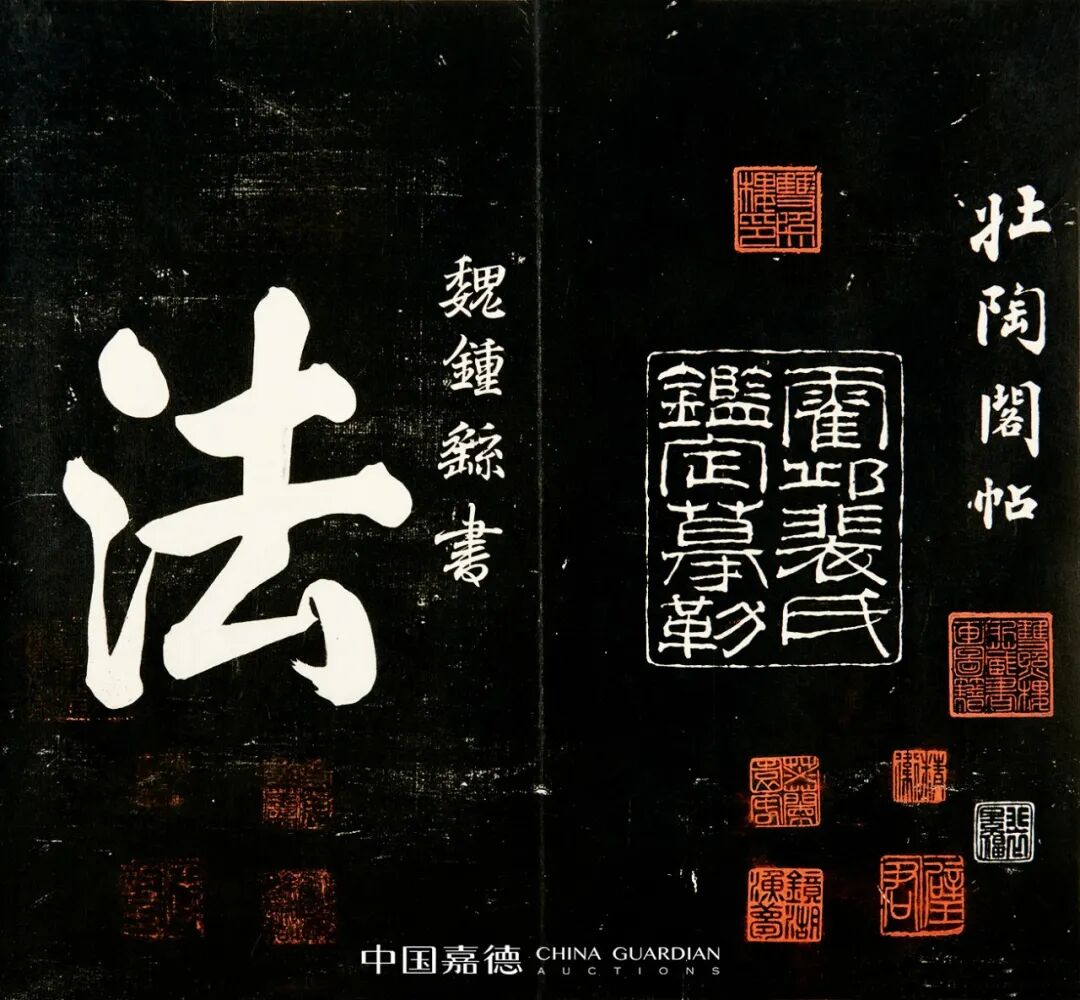 壯陶閣帖
雙照樓印
霍邱裴氏
鑑定摹勒
精衛
璧君
魏鍾繇書
法
中国嘉德 CHINA GUARDIAN
AUCTIONS